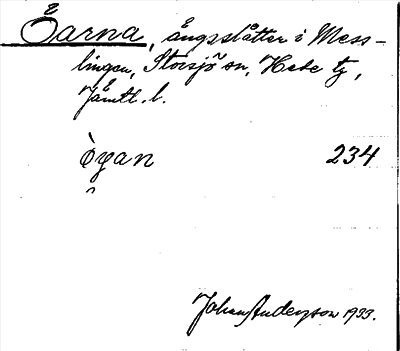 Öarna, ängsslåtter i Mess-
lingen, Storsjö sn, Hede tg,
Jämtl. l.
òyan 234
Johan Anderson 1933.